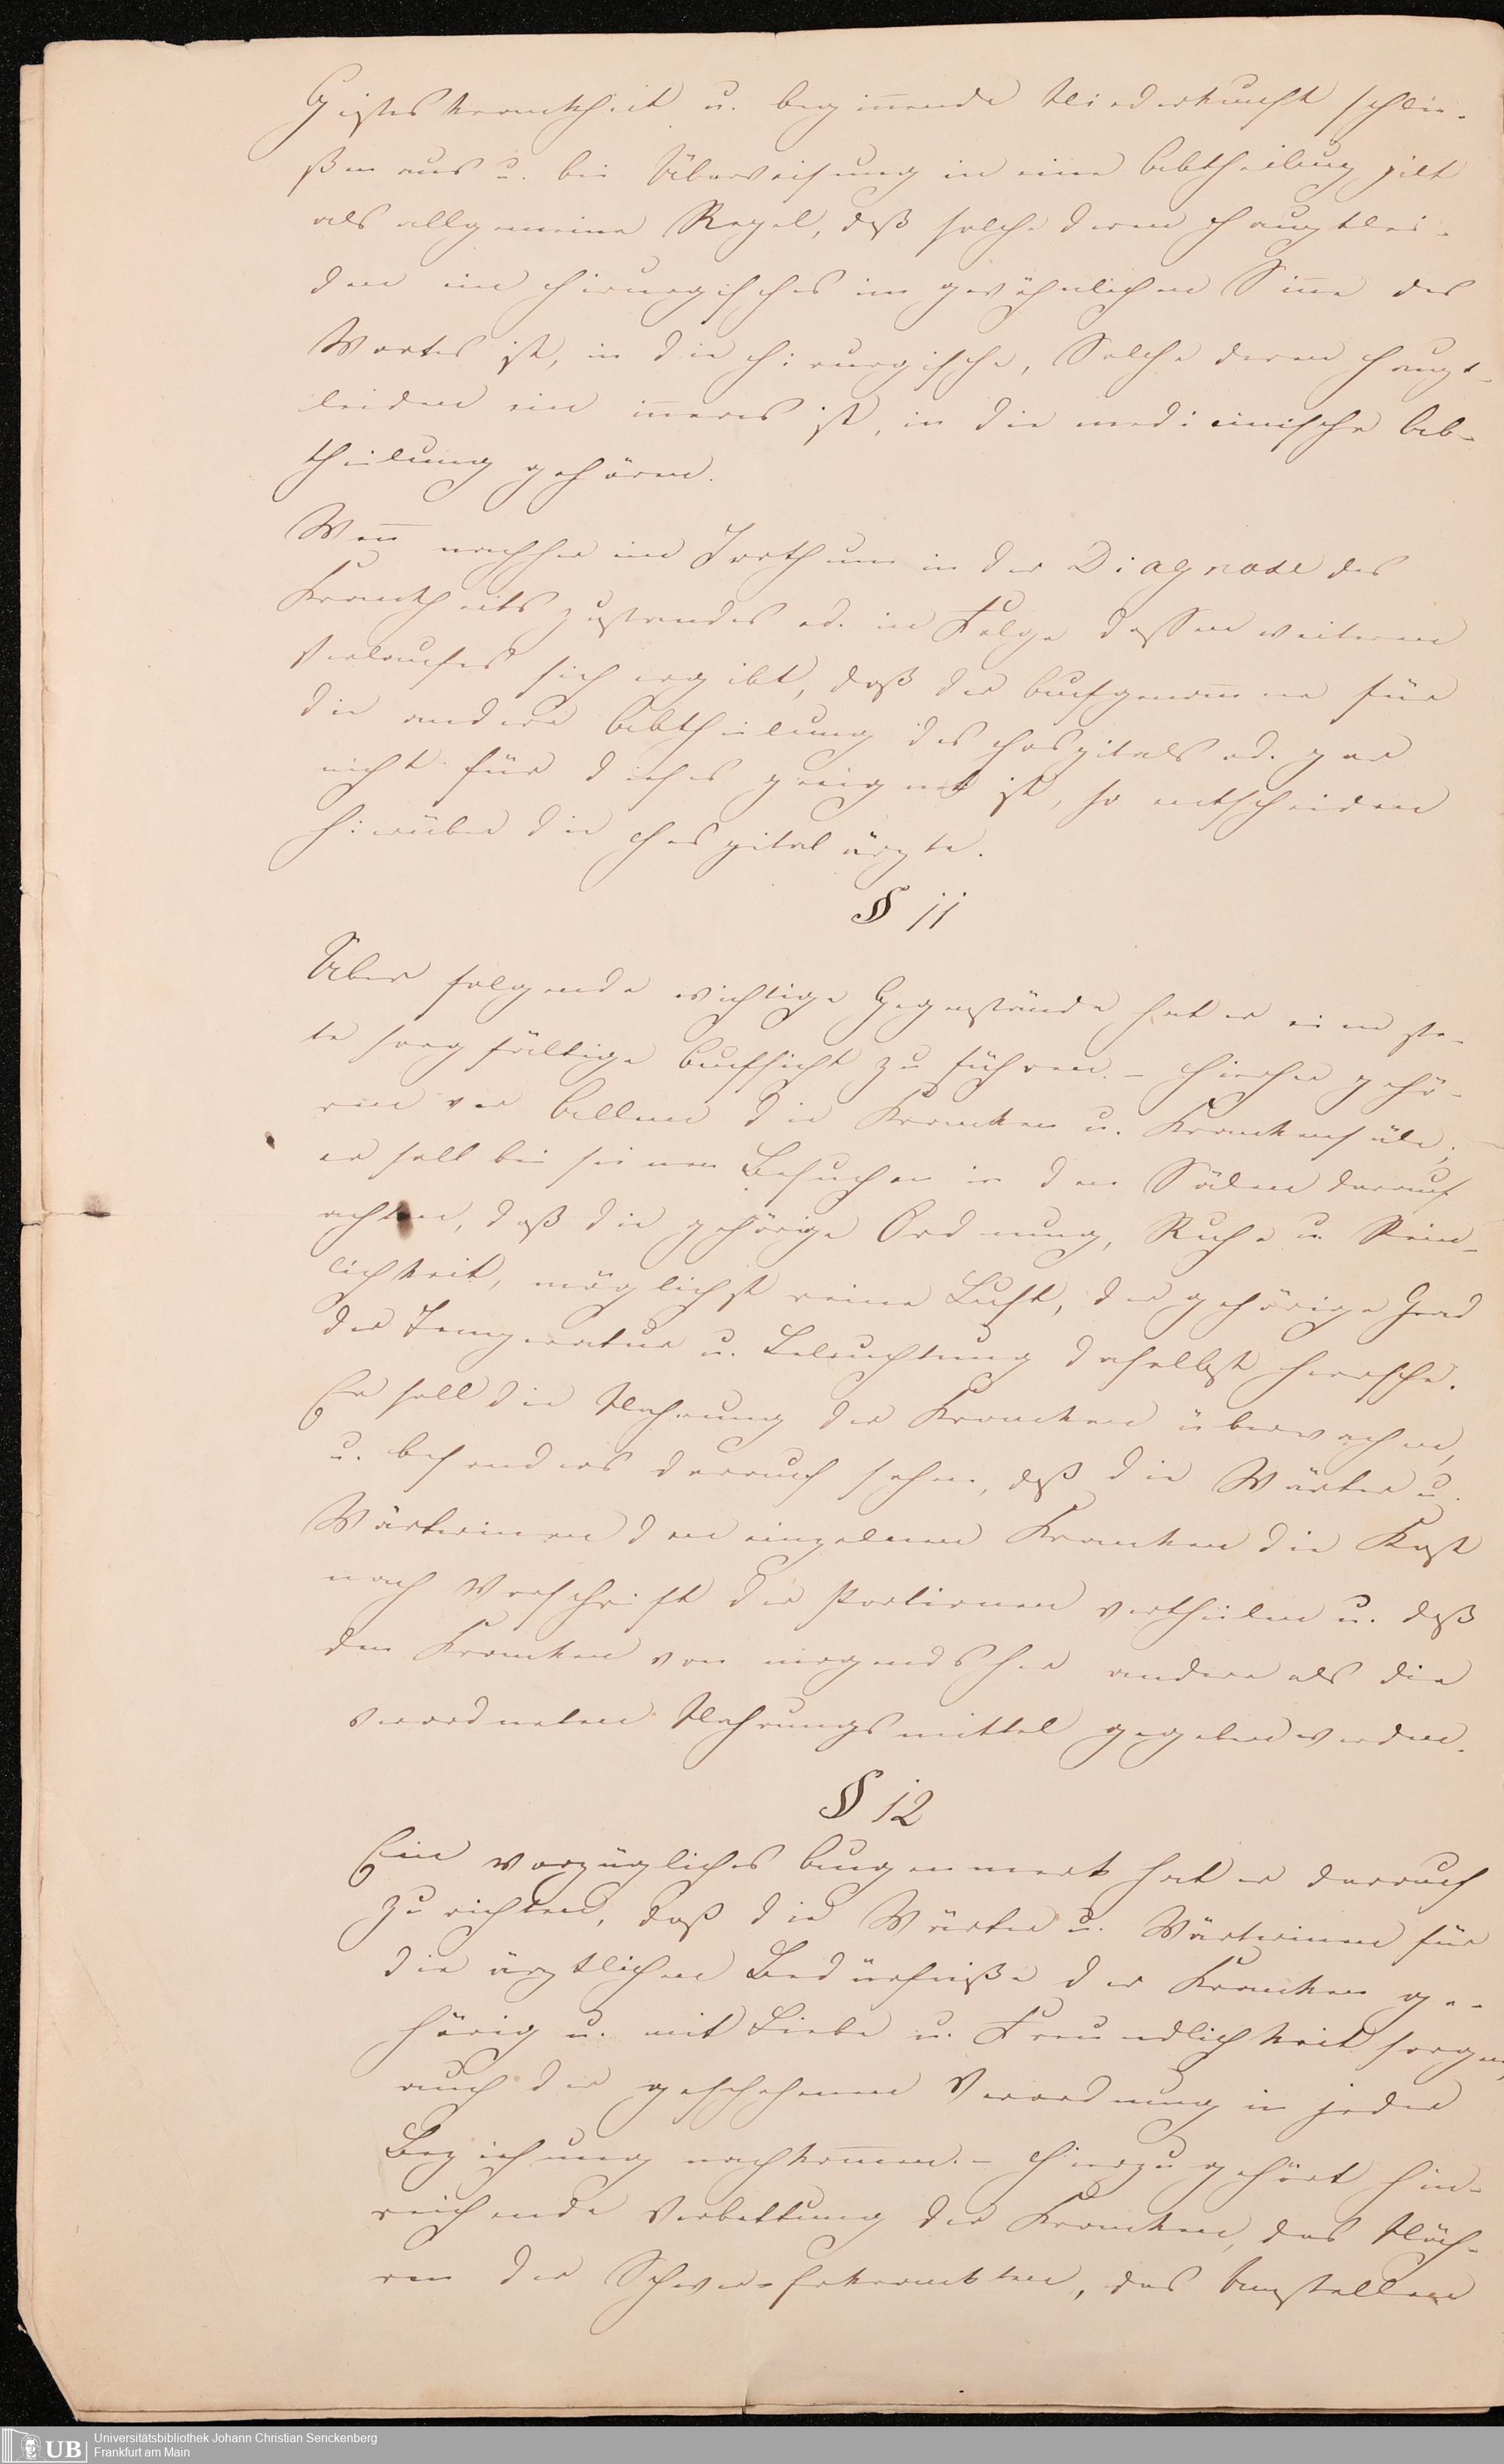 Geisteskrankheit u. begiñende Niederkunft schlie-
ßen aus u. bei Überweisung in eine Abtheilung gilt
als allgemeine Regel, daß solche deren Hauptlei-
den ein chirurgisches im gewöhnlichen Siñe des
Wortes ist, in die chirurgische, Solche deren Haupt-
leiden ein iñeres ist, in die medicinische Ab-
theilung gehören.
Weñ nachher ein Irrthum in der Diagnose des
Krankheitszustandes od. in Folge dessen weiteren
Verlaufes sich ergibt, daß der Aufgenom̃ene für
die andere Abtheilung des Hospitals od. gar
nicht für dieses geeignet ist, so entscheiden
hierüber die Hospitalärzte.
§ 11
Über folgende wichtige Gegenstände hat er eine ste-
te sorgfältige Aufsicht zu führen. – Hierher gehö-
ren vor Allem die Kranken u. Krankensäle;
er soll bei seinen Besuchen in den Sälen darauf
achten, daß die gehörige Ordnung, Ruhe u. Rein-
lichkeit, möglichst reine Luft, der gehörige Grad
der Temperatur u. Beleuchtung daselbst herrsche.
Er soll die Nahrung der Kranken überwachen,
u. besonders darauf sehen, daß die Wärter u.
Wärterinen den einzelnen Kranken die Kost
nach Vorschrift der Portionen vertheilen u. daß
den Kranken von nirgendsher andere als die
verordneten Nahrungsmittel gegeben werden.
§ 12
Ein vorzügliches Augenmerk hat er darauf
zu richten, daß die Wärter u. Wärterinen für
die ärztlichen Bedürfniße der Kranken ge-
hörig u. mit Liebe u. Freundlichkeit sorgen,
auch der geschehenen Verordnung in jeder
Beziehung nachkom̃en. – Hierzu gehört hin-
reichende Verbettung der Kranken, das Näh-
ren der Schwer-Erkrankten, das Anstellen
UB
Universitätsbibliothek Johann Christian Senckenberg
Frankfurt am Main